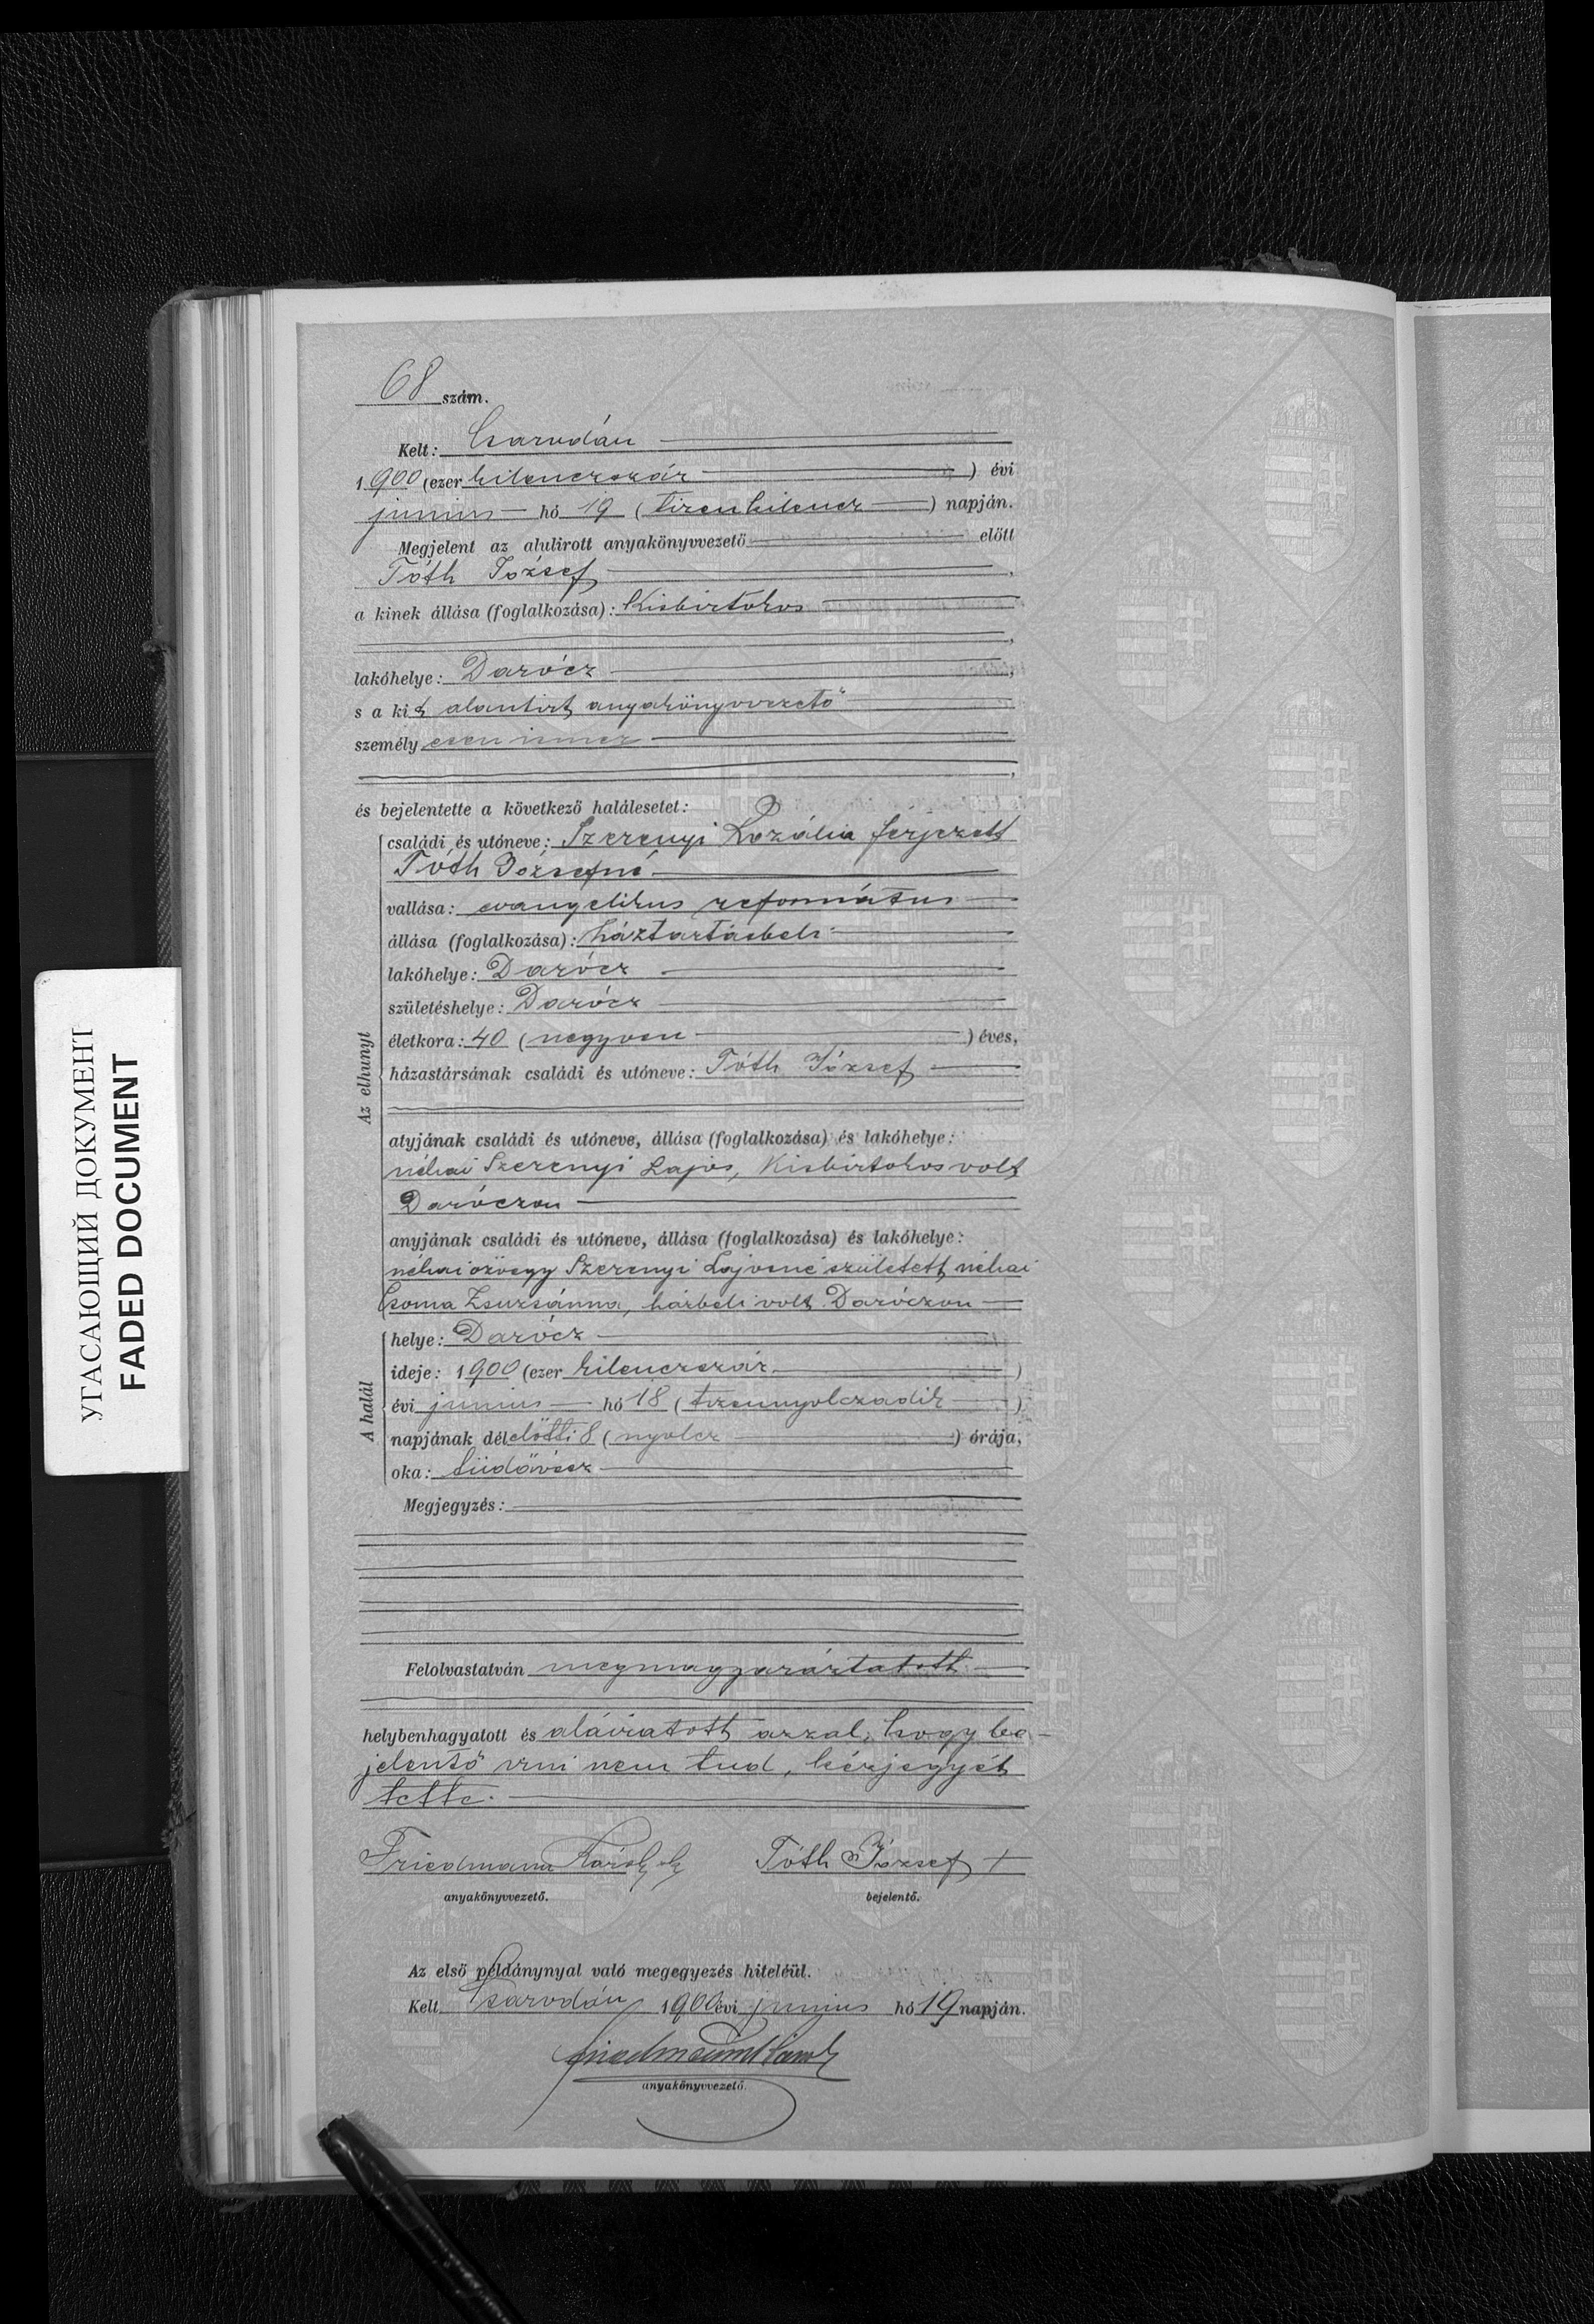 68 szám.
Kelt: Csarodán
1900 (ezer kilenczszáz ) évi
junius hó 19 (tizenkilencz ) napján.
Megjelent az alulirott anyakönyvvezető előtt
Tóth József ,
a kinek állása (foglalkozása): Kisbirtokos
,
lakóhelye: Darócz ,
s a kit alantirt anyakönyvvezető
személyesen ismer
,
és bejelentette a következő halálesetet:
Az elhunyt
családi és utóneve: Szerenyi Rozália ferjezett
Tóth Józsefné
vallása: evangelikus református
állása (foglalkozása): háztartásbeli
lakóhelye: Darócz
születéshelye: Darócz
életkora: 40 (negyven ) éves,
házastársának családi és utóneve: Tóth József
atyjának családi és utóneve, állása (foglalkozása) és lakóhelye:
néhai Szerenyi Lajos, Kisbirtokos volt
Daróczon
anyjának családi és utóneve, állása (foglalkozása) és lakóhelye:
néhai özvegy Szerenyi Lajosné született néhai
Csoma Zsuzsánna, házbeli volt Daróczon
A halál
helye: Darócz
ideje: 1900 (ezer kilenczszáz )
évi junius hó 18 (tizennyolczadik )
napjának délelötti 8 (nyolcz ) órája,
oka: tüdővész
Megjegyzés:
Felolvastatván megmagyaráztatott
helybenhagyatott és aláiratott azzal, hogy be-
jelentő irni nem tud, kézjegyét
tette.
Friedmann Károly Tóth József +
anyakönyvvezető. bejelentő.
Az első példánynyal való megegyezés hiteléül.
Kelt Csarodán 1900 évi junius hó 19 napján.
Friedmann Károly
anyakönyvvezető.
УГАСАЮЩИЙ ДОКУМЕНТ
FADED DOCUMENT